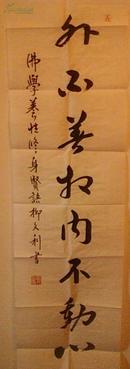 外不着相内不動心
佛學養性修身賢語柳文利書